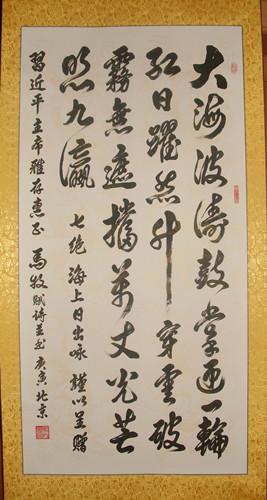 大海波濤鼓掌迎一輪
紅日躍然升穿雲破
霧無遮擋萬丈光芒
照九瀛 七絕 海上日出咏 謹以呈贈
習近平主席雅存惠正 馬牧賦詩並書 庚寅 北京